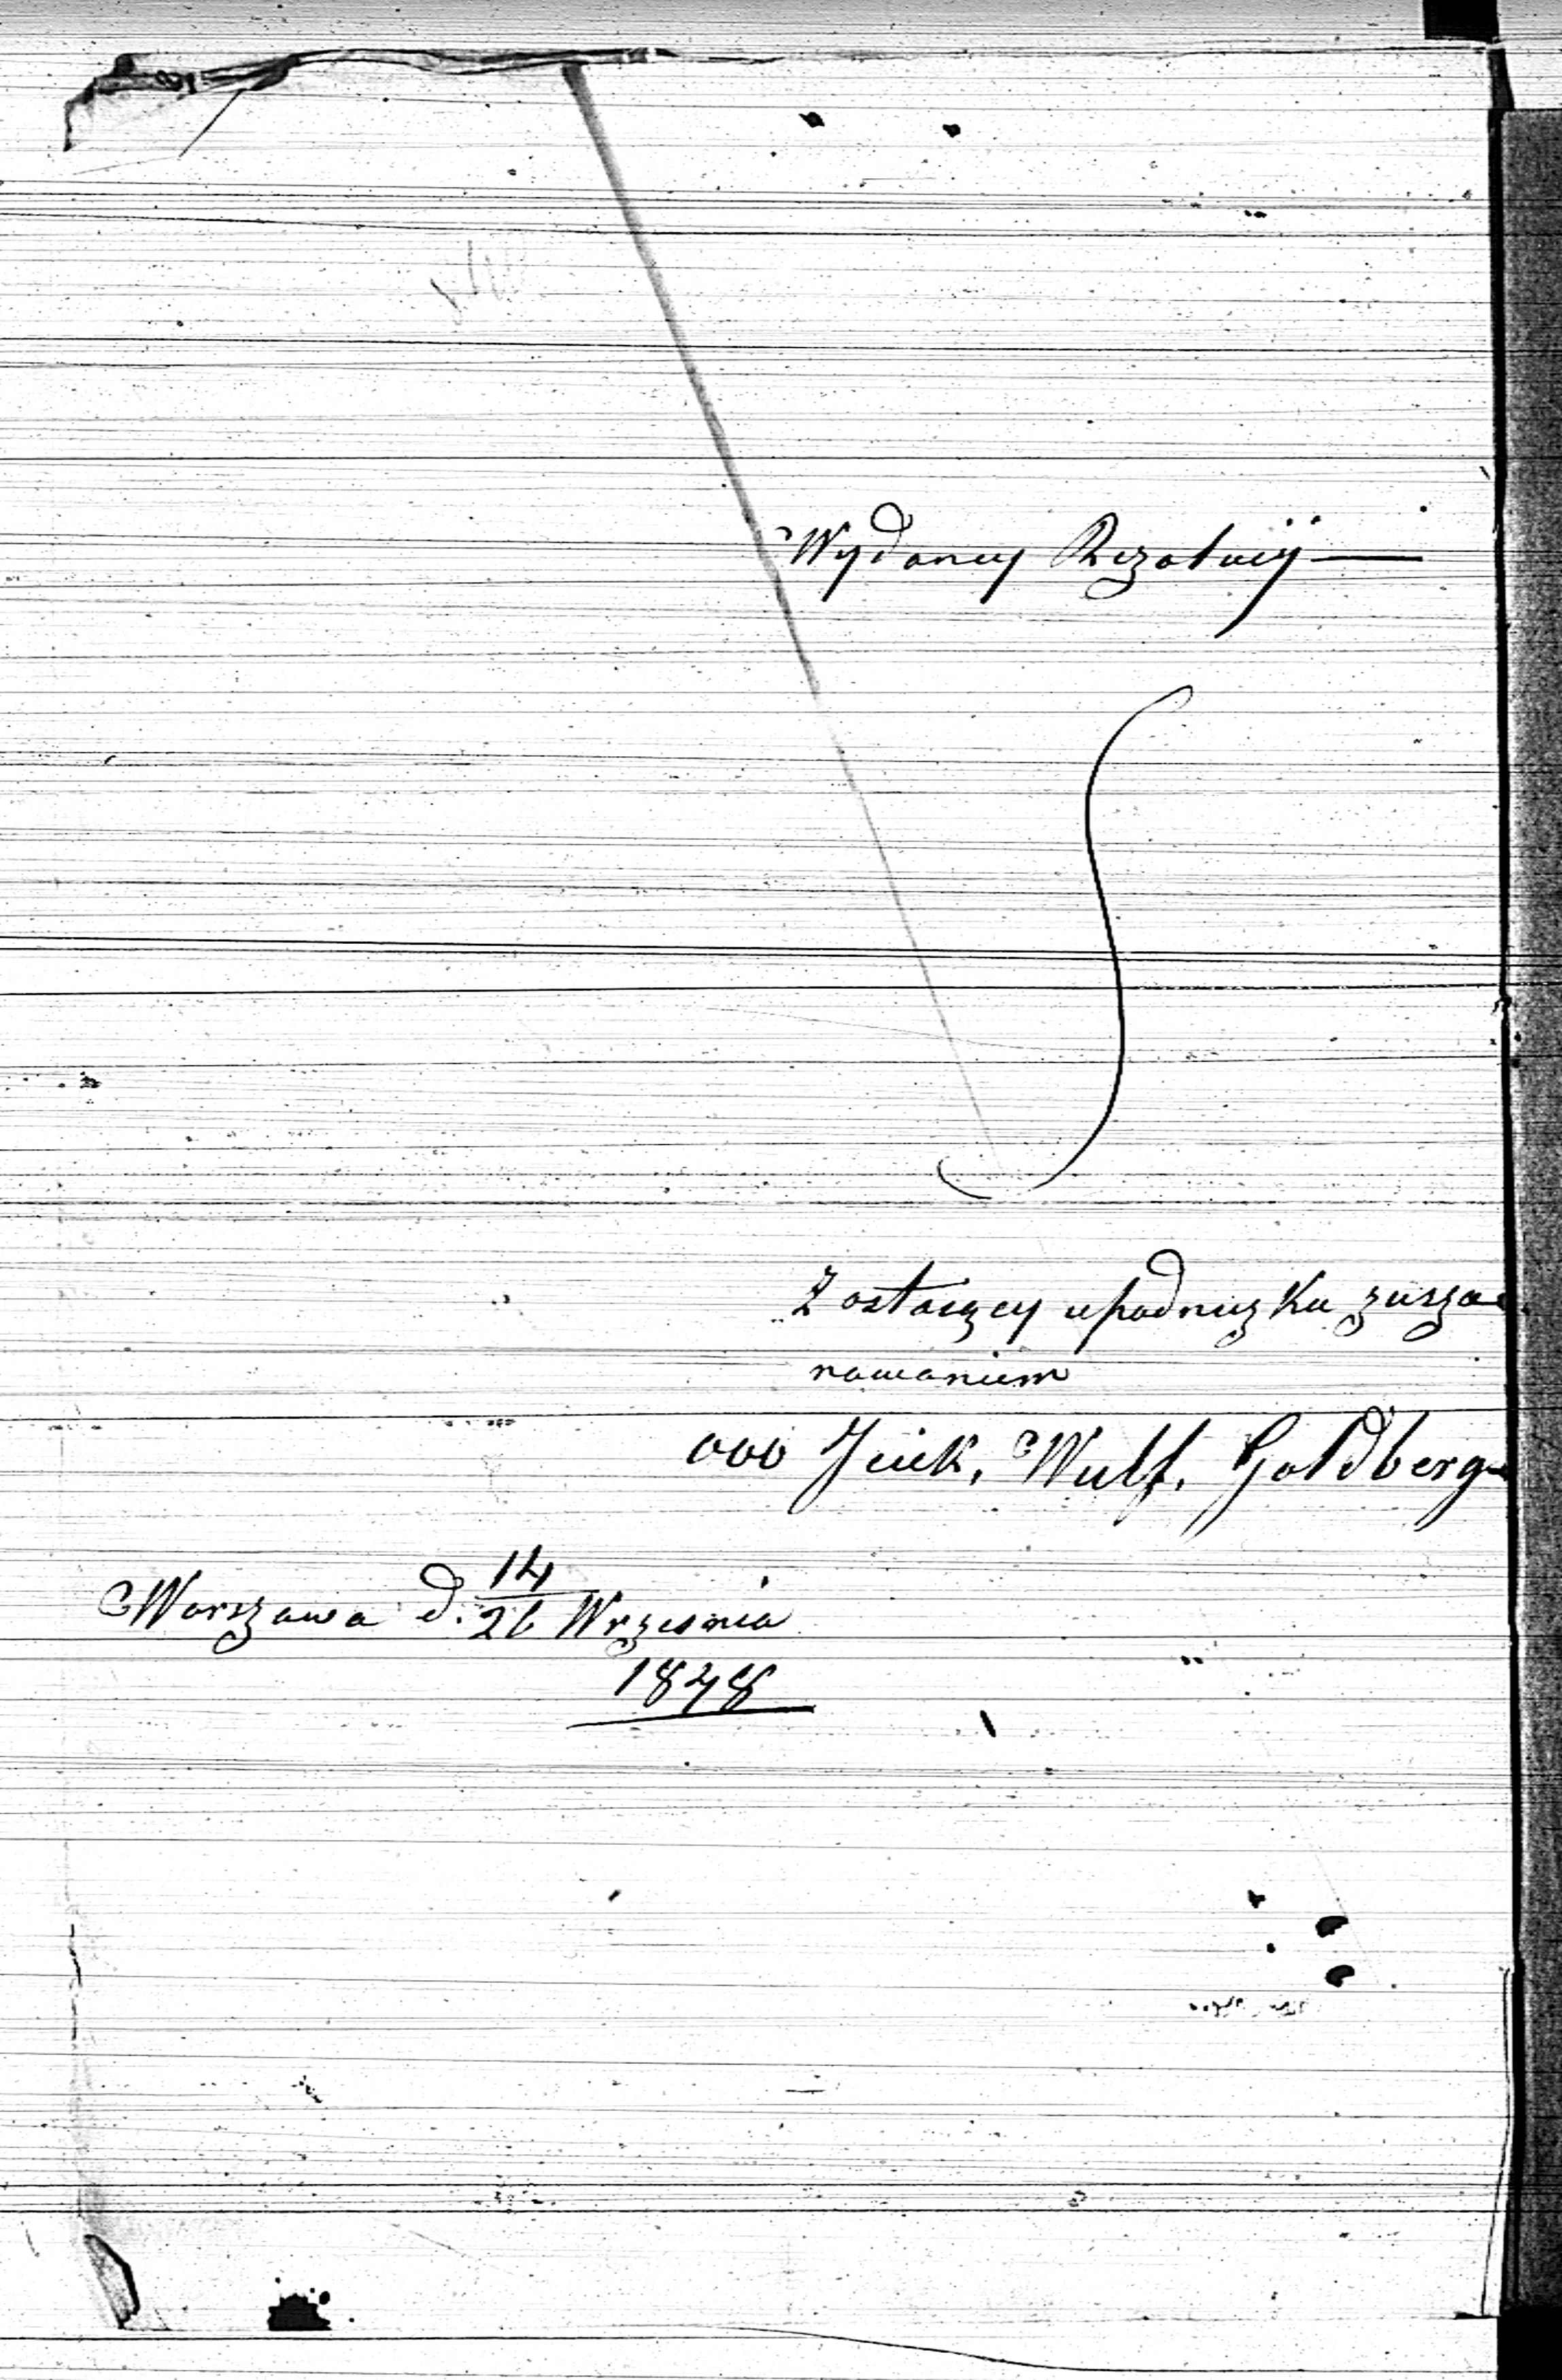 Wydaney Rezolucÿ —
Zostaiący upodnuzka zusza-
nowaniem
ooo Jcuk. Wulf. Goldberg
Warszawa d. 14/26 Wrzesnia
1848